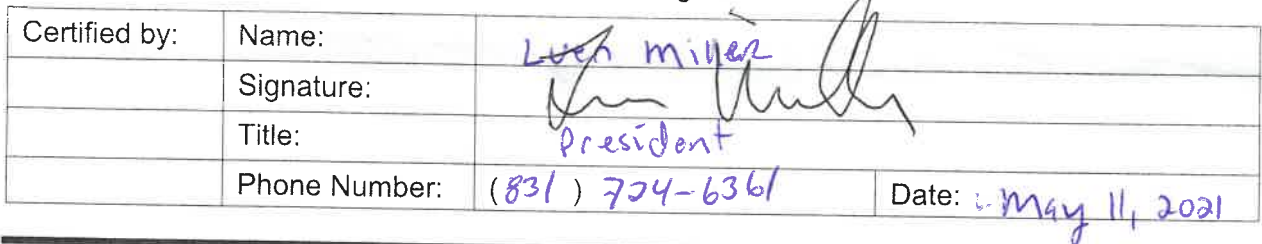 Certified by: Name: Luen Miller
Signature:
Title: President
Phone Number: (831) 724-6361 Date: May 11, 2021